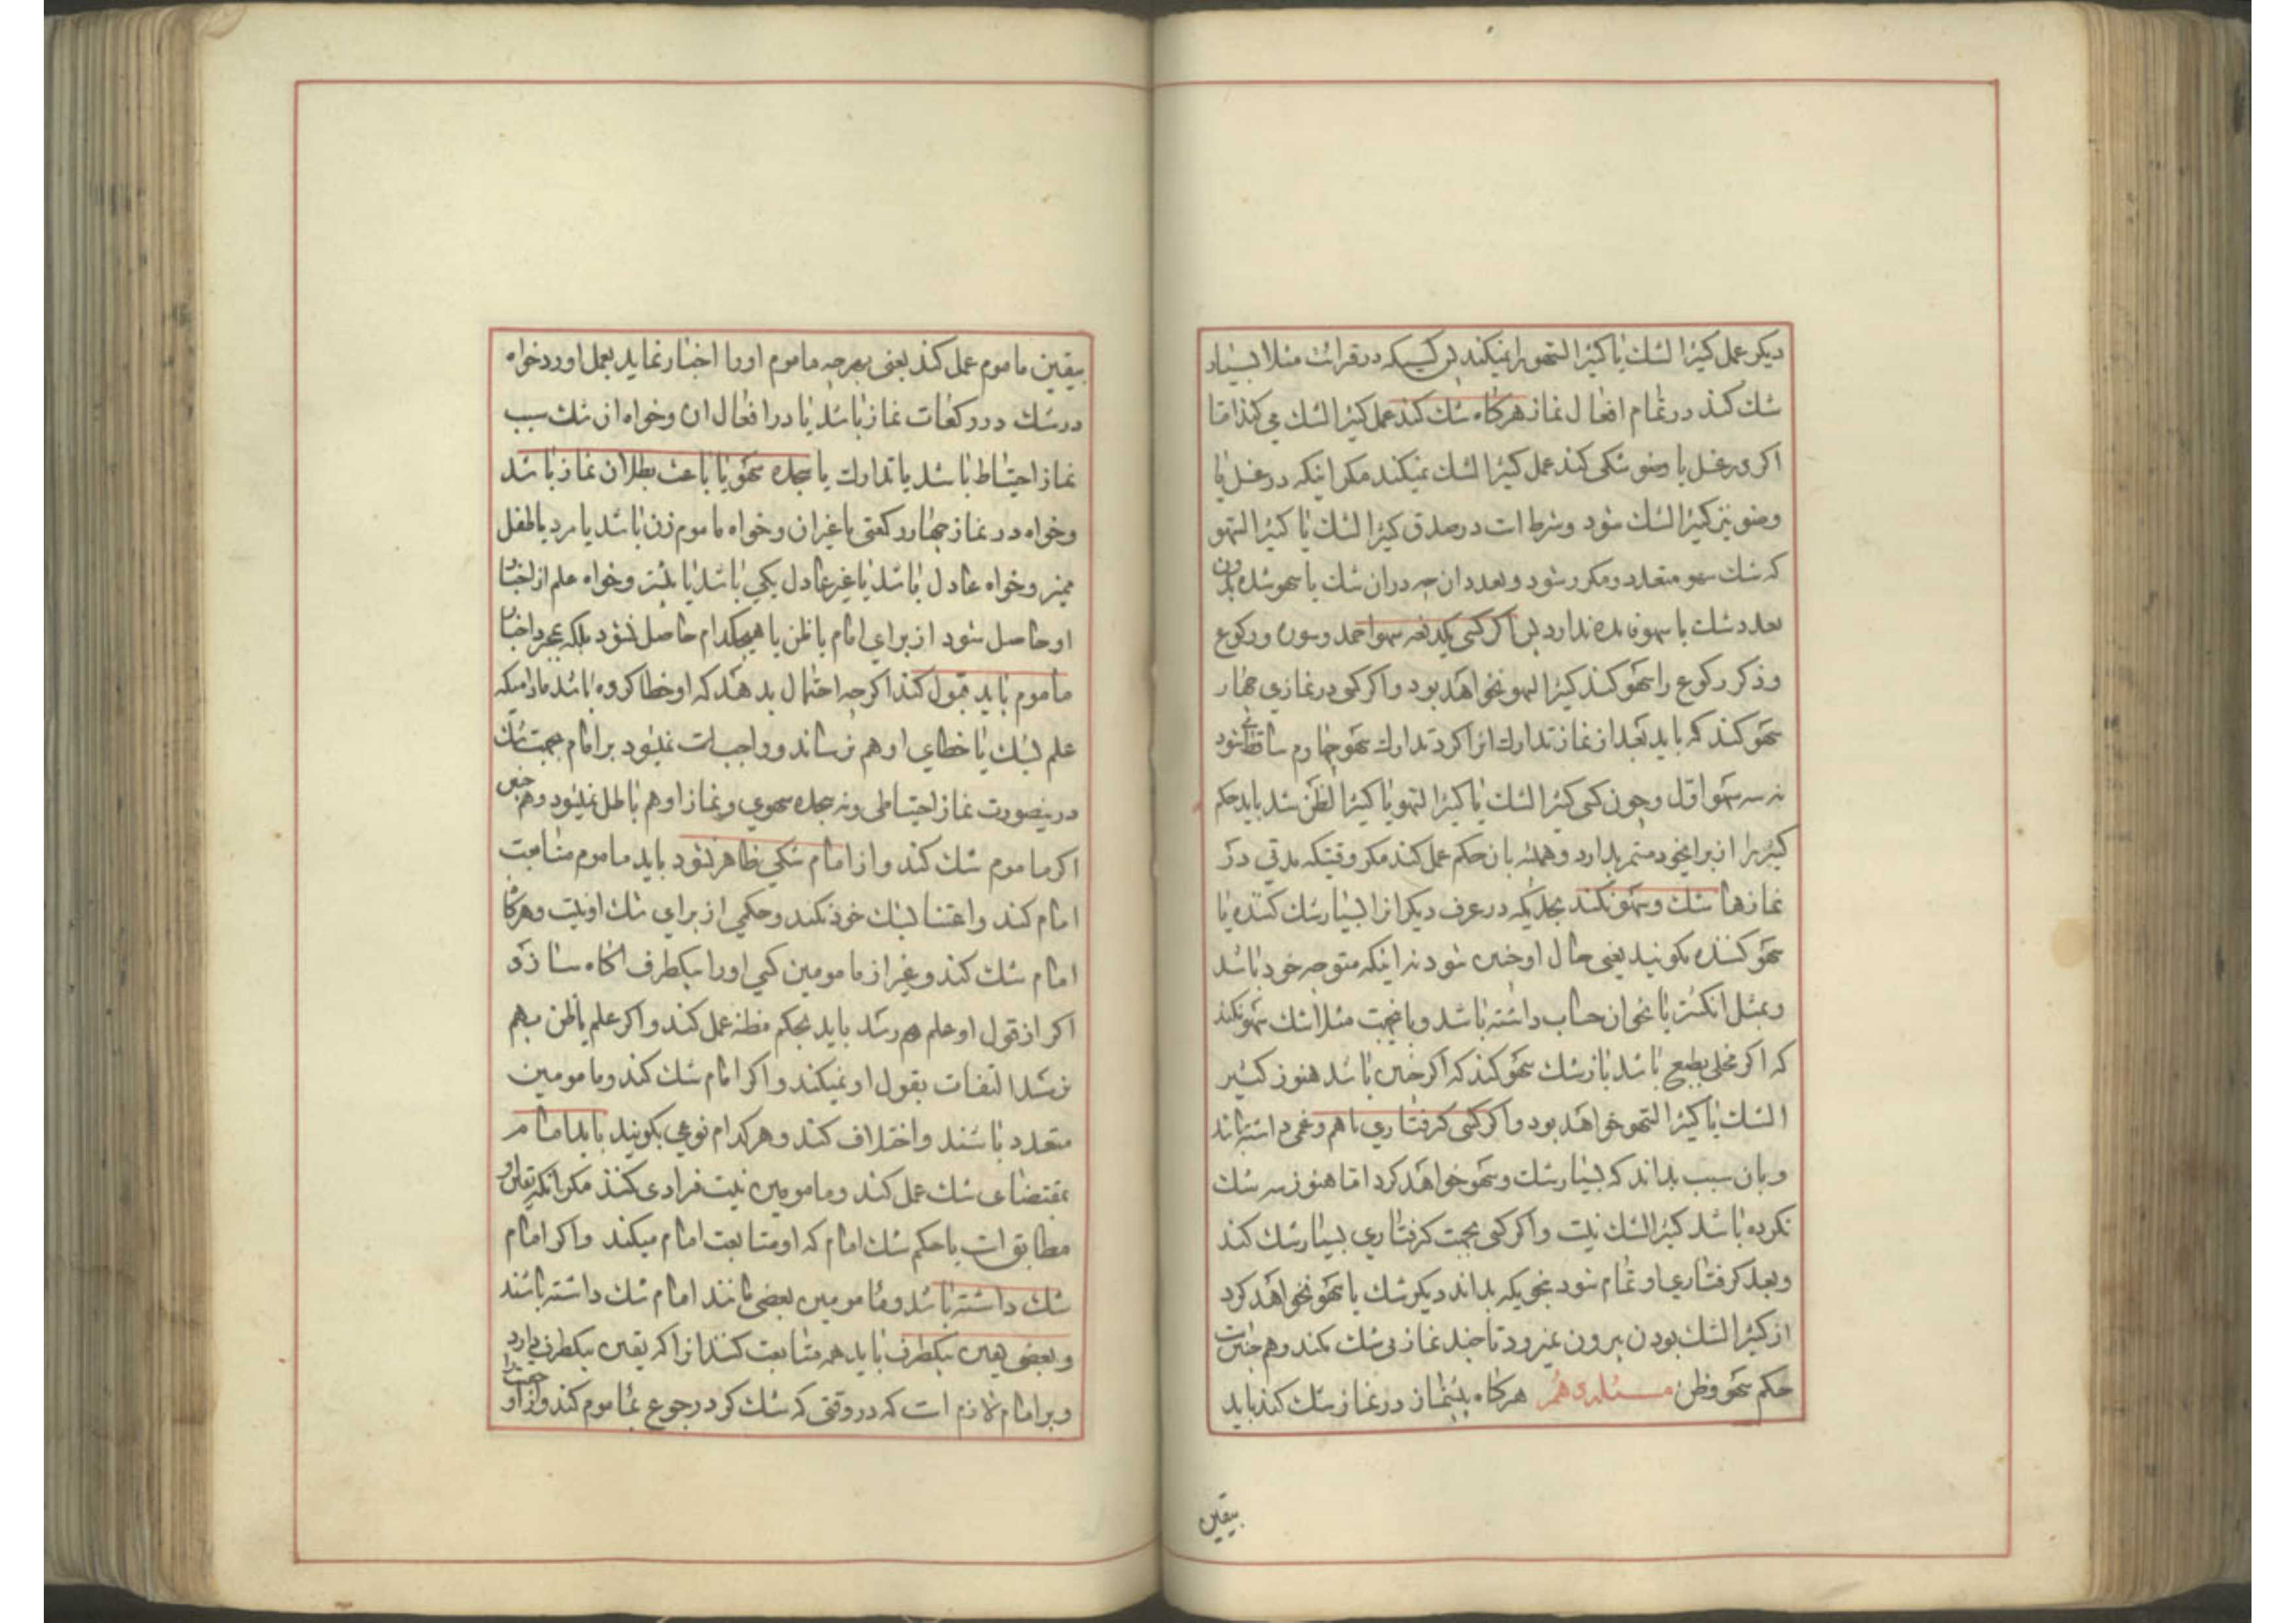 دیکر عمل کثیر الشك یا کثیر السهو را نمیکند پس کسیکه در قرائت مثلا بسیار
شك کند در تمام افعال نماز هرکاه شك کند عمل کثیر الشك می کند اما
اکر در غسل یا وضو شکی کند عمل کثیر الشك نمیکند مکر اینکه در غسل یا
وضو نیز کثیر الشك شود و شرط است در صدق کثیر الشك یا کثیر السهو
که شك سهو متعدد و مکرر شود و تعدد ان چه در ان شك یا سهو شده بدون
تعدد شك یا سهو فایده ندارد پس اکر کسی یکدفعه سهوا حمد و سوره و رکوع
و ذکر رکوع را سهو کند کثیر السهو نخواهد بود و اکر کسی در نمازی چهار
سهو کند که باید بعد از نماز تدارك انرا کرد تدارك سهو چهارم ساقط میشود
نه سه سهو اول و چون کسی کثیر الشك یا کثیر السهو یا کثیر الظن شد باید حکم
کثیر را از برای خود مستمر بدارد و همیشه بان حکم عمل کند مکر وقتیکه مدتی در
نمازها شك و سهو نکند بحدیکه در عرف دیکر او را بسیار شك کننده یا
سهو کننده نکویند یعنی حال او چنین شود نه اینکه متوجه خود باشد
و بمثل انکشتر یا نحو ان حساب داشته باشد و باینجهت مثلا شك سهو نکند
که اکر مخلی بطبع باشد باز شك سهو کند که اکر چنین باشد هنوز کثیر
الشك یا کثیر السهو خواهد بود و اکر کسی کرفتاری یا هم و غمی داشته باشد
و بان سبب بداند که بسیار شك و سهو خواهد کرد اما هنوز سه شك
نکرده باشد کثیر الشك نیست و اکر کسی بجهت کرفتاری بسیار شك کند
و بعد کرفتاری او تمام شود بنحویکه بداند دیکر شك یا سهو نخواهد کرد
از کثیر الشك بودن بیرون نمیرود تا چند نماز بی شك نکند و هم چنین است
حکم سهو و ظن مسئله دهم هرکاه پیشنماز در نماز شك کند باید
بیقین
بیقین ماموم عمل کند یعنی بهرچه ماموم او را اخبار نماید بعمل اورد خواه
در شك در رکعات نماز باشد یا در افعال ان و خواه ان شك سبب
نماز احتیاط باشد یا تدارك یا سجده سهو یا باعث بطلان نماز باشد
و خواه در نماز چهار رکعتی یا غیر ان و خواه ماموم زن باشد یا مرد یا طفل
ممیز و خواه عادل باشد یا غیر عادل یکی باشد یا بیشتر و خواه علم از اخبار
او حاصل شود از برای امام یا ظن یا هیچکدام حاصل نشود بلکه بمجرد اخبار
ماموم باید قبول کند اکرچه احتمال بدهد که او خطا کرده باشد مادامیکه
علم بشك یا خطای او هم نرساند و واجب نمیشود بر امام بجهت شك
درینصورت نماز احتیاطی و نه سجده سهوی و نماز او هم باطل نمیشود و هم چنین
اکر ماموم شك کند و از امام شکی ظاهر نشود باید ماموم متابعت
امام کند و اعتنا بشك خود نکند و حکمی از برای شك او نیست و هرکاه
امام شك کند و غیر از مامومین کسی او را بیکطرف اکاه سازد
اکر از قول او علم هم رسد باید بحکم مظنه عمل کند و اکر علم یا ظن بهم
نرسد التفات بقول او نمیکند و اکر امام شك کند و مامومین
متعدد باشند و اختلاف کند و هر کدام نوعی بکویند باید امام
بمقتضای شك عمل کند و مامومین نیت فرادی کنند مکر انکه یقین او
مطابق است با حکم شك امام که او متابعت امام میکند و اکر امام
شك داشته باشد و مامومین بعضی مانند امام شك داشته باشند
و بعضی یقین بیکطرف باید همه متابعت کنند انرا که یقین بیکطرف دارد
و بر امام لازم است که در وقتی که شك کرد رجوع بماموم کند و از او